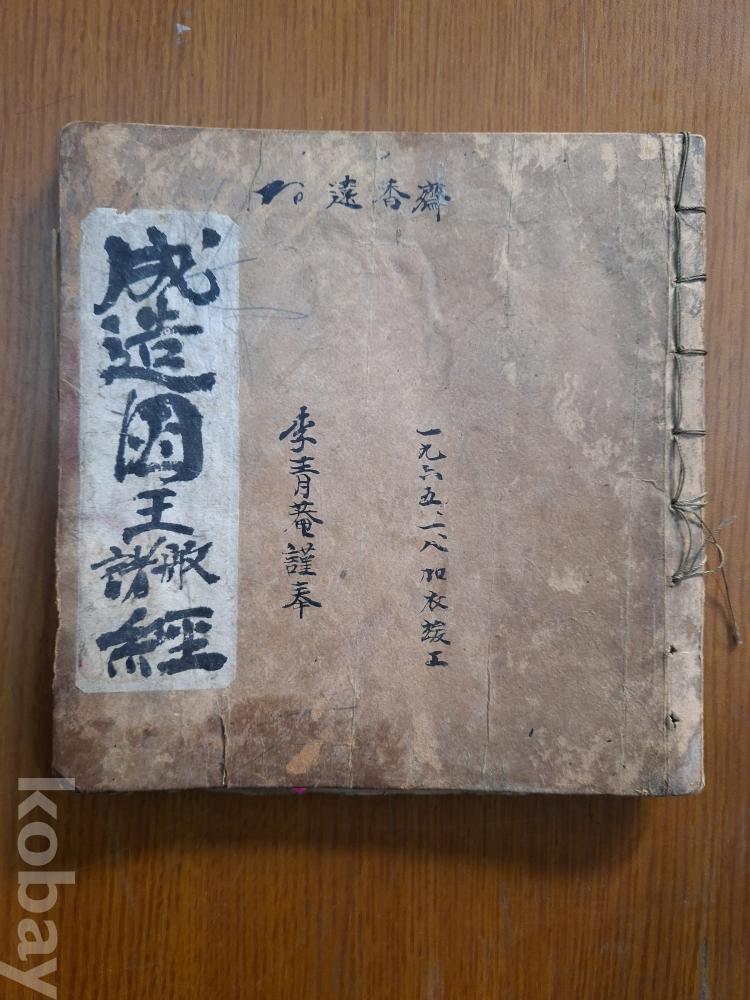 遠香齋
一九六五、一、八 加衣竣工
李青菴謹奉
成造國王諸般經
kobay